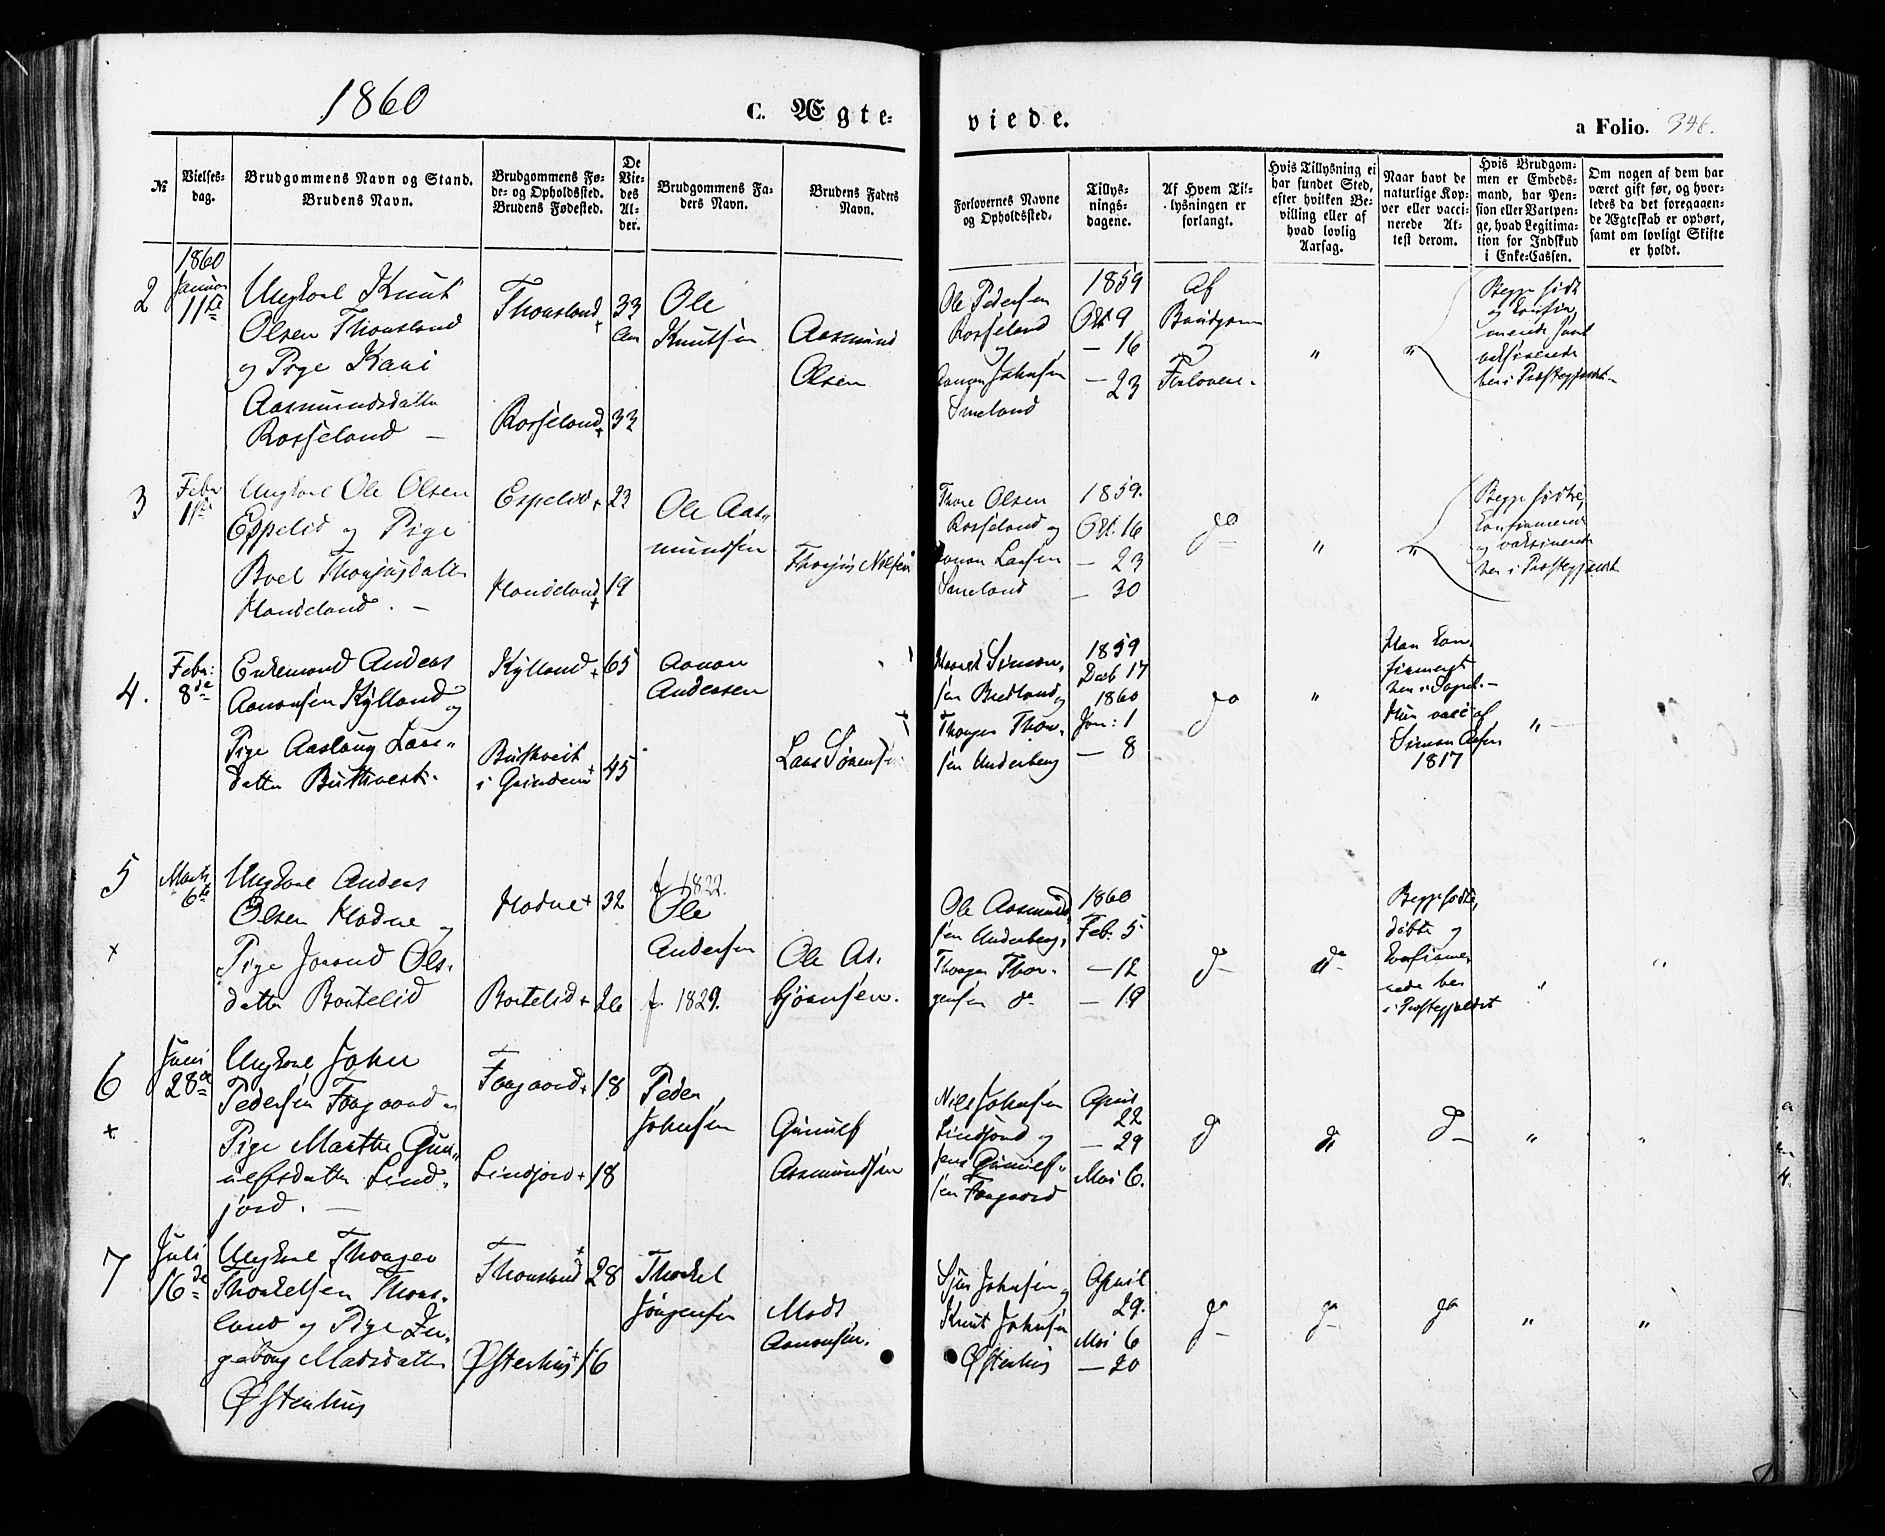 1860
C. Ægte-
viede.
a Folio. 346.
№
Vielses-
dag.
Brudgommens Navn og Stand.
Brudens Navn.
Brudgommens Fø-
de- og Opholdssted.
Brudens Fødested.
De
Vie-
des
Al-
der.
Brudgommens Fa-
ders Navn.
Brudens Faders
Navn.
Forlovernes Navne
og Opholdssted.
Tillys-
nings-
dagene.
Af Hvem Til-
lysningen er
forlangt.
Hvis Tillysning ei
har fundet Sted,
efter hvilken Be-
villing eller af
hvad lovlig
Aarsag.
Naar havt de
naturlige Kop-
per eller vacci-
nerede At-
test derom.
Hvis Brudgom-
men er Embeds-
mand, har Pen-
sion eller Vartpen-
ge, hvad Legitima-
tion for Indskud
i Enke-Cassen.
Om nogen af dem har
været gift før, og hvor-
ledes da det foregaaen-
de Ægteskab er ophørt,
samt om lovligt Skifte
er holdt.
2
1860
Januar
11te
Ungkarl Knut
Olsen Thonsland
og Pige Kari
Aasmundsdatter
Rosseland —
Thonsland +
Rosseland +
33
Aar
33
Ole
Knutsen
Aasmund
Olsen
Ole Pedersen
Rosseland
og
Aanon Johnsen
Smeland
1859
Oct 9
— 16
— 23
Af
Brudgom
og
Forlovere.
"
"
Begge fødte
og konfir
merede samt
vaksinerede
her i Præstegjeldet —
3
Febr
1ste
Ungkarl Ole Olsen
Espelid og Pige
Boel Thorjusdatter
Handeland. —
Espelid +
Handeland +
23
19
Ole Aas„
mundsen
Thorjus Nilsen
Thore Olsen
Rosseland og
Aanon Larsen
Smeland
1859.
Oct. 16
— 23
— 30
do
"
"
Begge fødte,
konfirmerede
og vaksinerede
her i Præstegjeldet
4.
Febr:
8de
Enkemand Anders
Aanonsen Kylland
og
Pige Aaslaug Lars„
datter Butkveit.
Kylland +
Butkveit
i Grindem +
65
45
Aanon
Andersen
Lars Sørensen
Simon„
sen Birkeland og
Thorger Thor„
sen Underberg
1859
Decb 17
1860
Jan: 1
— 8
do
"
Han kon„
firmeret
her i Sognet. —
Hun vacc af
Simon
1817
"
5
+
Marts
6te
Ungkarl Anders
Olsen Hodne og
Pige Jorand Ols„
datter Bortelid
Hodne +
Bortelid +
32
26
f 1822.
Ole
Andersen
f 1829.
Ole As„
bjørnsen.
Ole Aasmund„
sen Underberg,
Thorger Thor„
gersen do
1860
Feb. 5
— 12
— 19
do
do
Begge fødte,
døbte og
konfirme„
rede her
i Præstegjeldet
"
"
6
+
Juni
28de
Ungkarl John
Pedersen Faagaard og
Pige Marthe Gun„
ulfsdatter Lind„
jord. —
Faagaard +
Lindjord +
18
18
Peder
Johnsen
Gunulf
Aasmundsen
Nils Johnsen
Lindjord og
Jens Gunulf„
sen Faagaard
April
22
— 29
Mai 6.
do
do
do
"
"
7
Juli
16de
Ungkarl Thorger
Thorkelsen Thons„
land og Pige In„
geborg Madsdatter
Østerhus
Thonsland +
Østerhus +
28
16
Thorkel
Jørgensen
Mads
Aanonsen.
Johnsen og
Knut Johnsen
Østerhus
April
29.
Mai 6
— 20
do
do
do
"
"